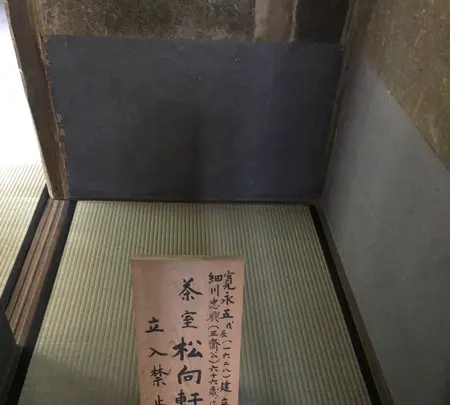 寛永五戊辰(一六二八)建
細川忠興(三斎公)六十六歳
茶室松向軒
立入禁止